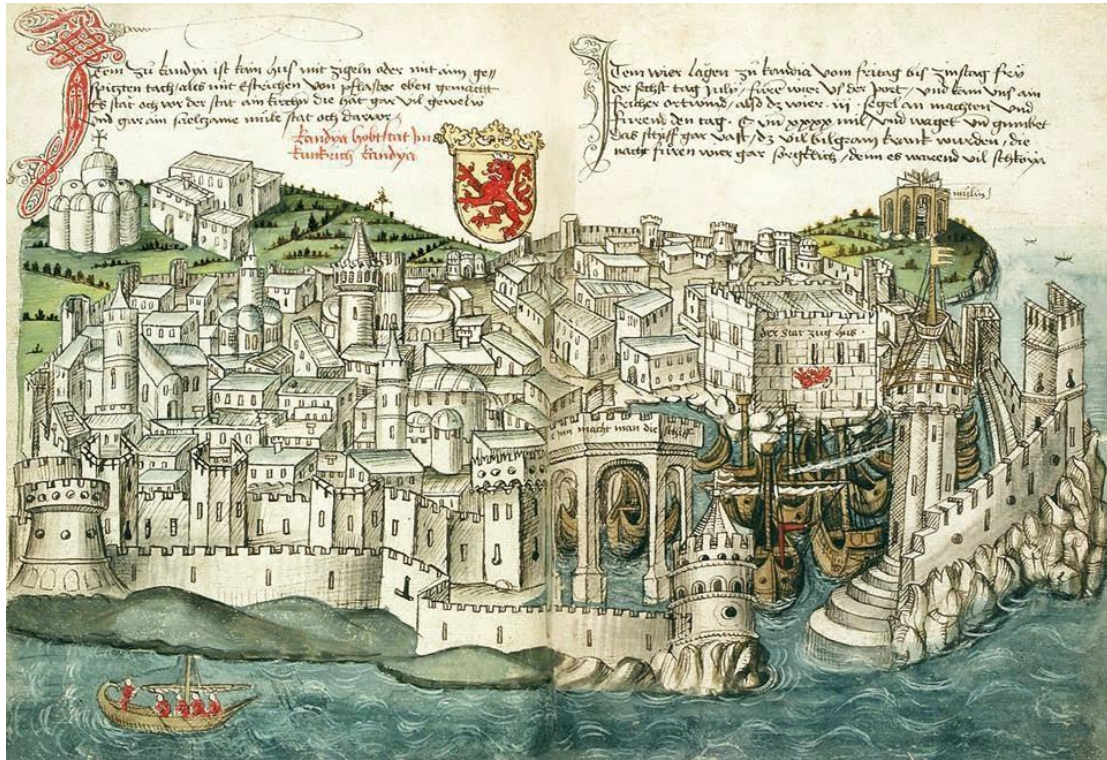 Item zü kandya ist kain hus mit zigeln oder mit aim ge//
spizten tach / alles mit estrichen von pflaster eben gemacht
Es stat och vor der stat ain kirchy die hat gar vil gewelw
vnd gar ain sælczame müle stat och darvor
kandya hobtstat Jm
künkrich kandya
Item wier lägen zü kandia vom fritag bis zinstag frÿ
der sechst tag July / füre wier vs der port / vnd kam vns ain
fricher ortwind / also dz wier iij segel an machten vnd
fürend den tag C vnd xxxx mil / vnd waget vn gumket
das schyff gar vast / dz vil bilgram krank wurden / die
nacht füren wier gar sorgklich / denn es warend vil schkoya
mülin
der stat züg hus
jnn macht man die schiff